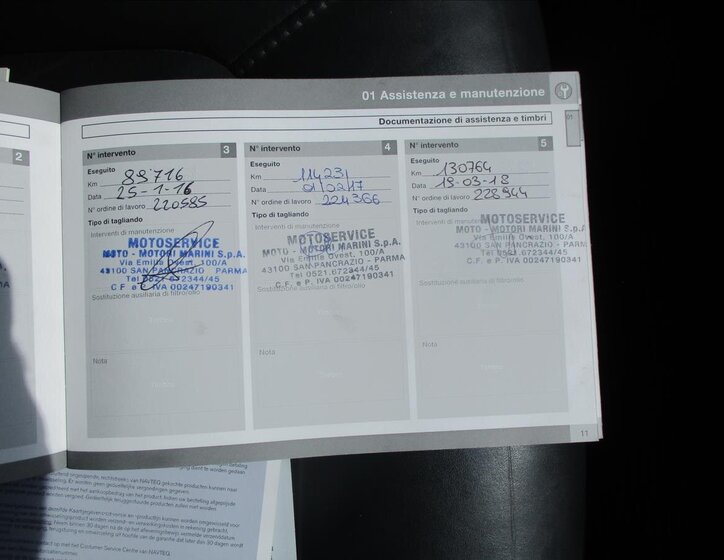 01 Assistenza e manutenzione
01
Documentazione di assistenza e timbri
2
N° intervento 3
Eseguito
Km 88716
Data 25-1-16
N° ordine di lavoro 220585
Tipo di tagliando
Interventi di manutenzione
MOTOSERVICE
MOTO - MOTORI MARINI S.p.A.
Via Emilia Ovest, 100/A
43100 SAN PANCRAZIO - PARMA
Tel 0521.672344/45
C.F. e P. IVA 00247190341
Sostituzione ausiliaria di filtro/olio
Timbro
Nota
Timbro
N° intervento 4
Eseguito
Km 114231
Data 01/02/17
N° ordine di lavoro 224366
Tipo di tagliando
Interventi di manutenzione
MOTOSERVICE
MOTO - MOTORI MARINI S.p.A.
Via Emilia Ovest, 100/A
43100 SAN PANCRAZIO - PARMA
Tel 0521.672344/45
C.F. e P. IVA 00247190341
Sostituzione ausiliaria di filtro/olio
Nota
N° intervento 5
Eseguito
Km 130764
Data 19-03-18
N° ordine di lavoro 228944
Tipo di tagliando
Interventi di manutenzione
MOTOSERVICE
MOTO - MOTORI MARINI S.p.A.
Via Emilia Ovest, 100/A
43100 SAN PANCRAZIO - PARMA
Tel 0521.672344/45
C.F. e P. IVA 00247190341
Sostituzione ausiliaria di filtro/olio
Nota
11